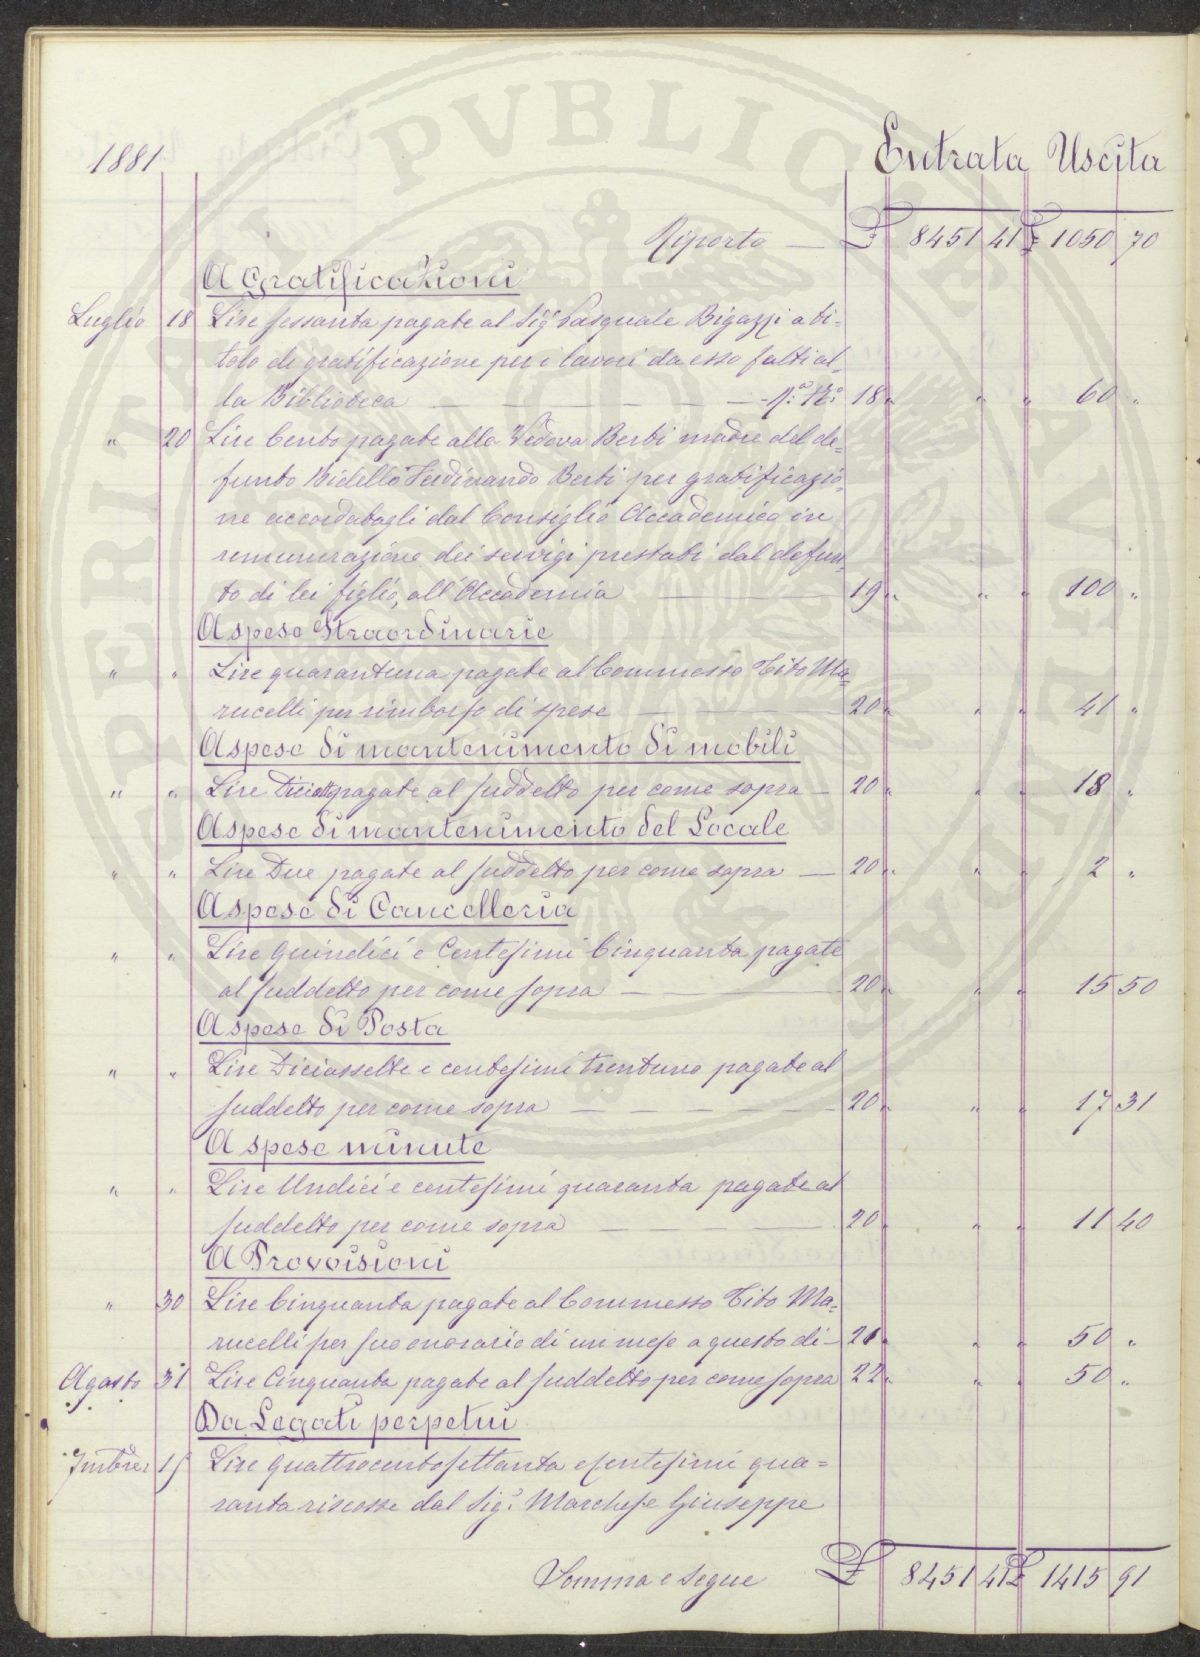 1881 Entrata Uscita
Riporto — £ 8451 41 £ 1050 70
A Gratificazioni
Luglio 18 Lire sessanta pagate al Sigr Pasquale Bigazzi a ti-
tolo di gratificazione per i lavori da esso fatti al-
la Biblioteca — 18 " " " 60 "
" 20 Lire Cento pagate alla Vedova Berti madre del de-
funto Bidello Ferdinando Berti per gratificazio-
ne accordatagli dal Consiglio Accademico in
remunerazione dei servigi prestati dal defun-
to di lei figlio, all'Accademia — 19 " " " 100 "
A spese Straordinarie
" " Lire quarantuna pagate al Commesso Tito Ma-
rucelli per rimborso di spese — 20 " " " 41 "
A spese di mantenimento di mobili
" " Lire Diciotto pagate al suddetto per come sopra — 20 " " " 18 "
A spese di mantenimento del Locale
" " Lire Due pagate al suddetto per come sopra — 20 " " " 2 "
A spese di Cancelleria
" " Lire Quindici e Centesimi Cinquanta pagate
al suddetto per come sopra — 20 " " " 15 50
A spese di Posta
" " Lire Diciassette e centesimi trentuno pagate al
suddetto per come sopra — 20 " " " 17 31
A spese minute
" " Lire Undici e centesimi quaranta pagate al
suddetto per come sopra — 20 " " " 11 40
A Provvisioni
" 30 Lire Cinquanta pagate al Commesso Tito Ma-
rucelli per suo onorario di un mese a questo dì — 21 " " " 50 "
Agosto 31 Lire Cinquanta pagate al suddetto per come sopra 22 " " " 50 "
Da Legati perpetui
7mbre 15 Lire Quattrocentosettanta e centesimi qua=
ranta riscosse dal Sigr Marchese Giuseppe
Somma e segue £ 8451 41 £ 1415 91